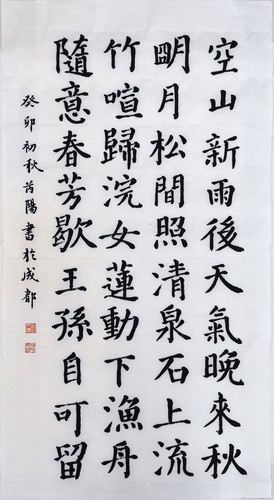 空山新雨後天氣晚來秋
明月松間照清泉石上流
竹喧歸浣女蓮動下漁舟
隨意春芳歇王孫自可留
癸卯初秋芮陽書於成都